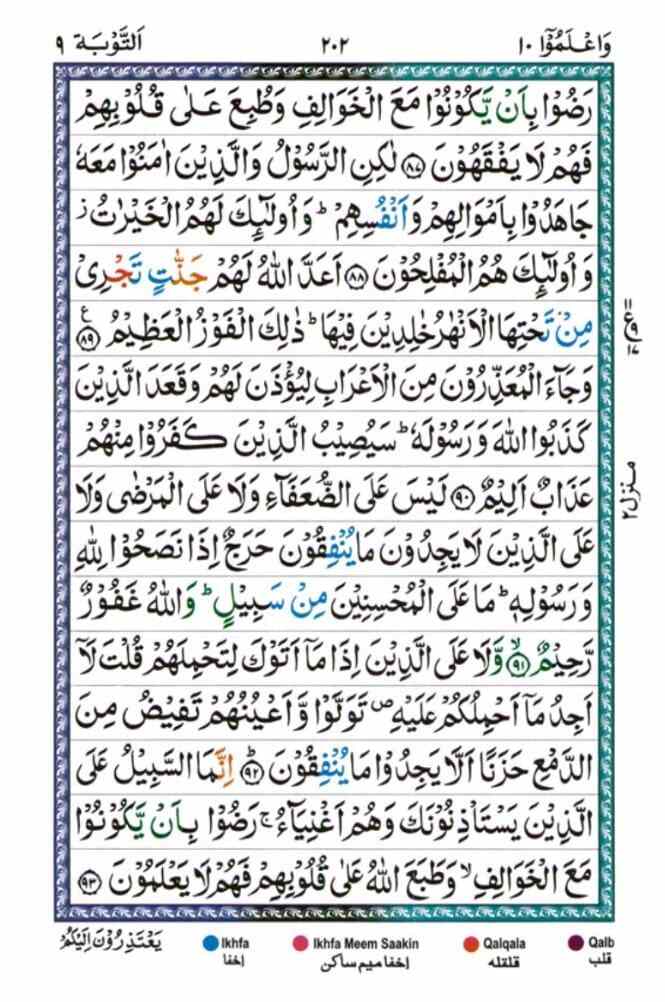 وَاعْلَمُوْۤا ۱۰ ۲۰۲ اَلتَّوْبَة ۹
رَضُوْا بِاَنْ يَّكُوْنُوْا مَعَ الْخَوَالِفِ وَطُبِعَ عَلٰى قُلُوْبِهِمْ
فَهُمْ لَا يَفْقَهُوْنَ ﴿۸۷﴾ لٰكِنِ الرَّسُوْلُ وَالَّذِيْنَ اٰمَنُوْا مَعَهٗ
جَاهَدُوْا بِاَمْوَالِهِمْ وَاَنْفُسِهِمْ ؕ وَاُولٰٓئِكَ لَهُمُ الْخَيْرٰتُ ز
وَاُولٰٓئِكَ هُمُ الْمُفْلِحُوْنَ ﴿۸۸﴾ اَعَدَّ اللّٰهُ لَهُمْ جَنّٰتٍ تَجْرِىْ
مِنْ تَحْتِهَا الْاَنْهٰرُ خٰلِدِيْنَ فِيْهَا ؕ ذٰلِكَ الْفَوْزُ الْعَظِيْمُ ﴿۸۹﴾ ع
وَجَآءَ الْمُعَذِّرُوْنَ مِنَ الْاَعْرَابِ لِيُؤْذَنَ لَهُمْ وَقَعَدَ الَّذِيْنَ
كَذَبُوا اللّٰهَ وَرَسُوْلَهٗ ؕ سَيُصِيْبُ الَّذِيْنَ كَفَرُوْا مِنْهُمْ
عَذَابٌ اَلِيْمٌ ﴿۹۰﴾ لَيْسَ عَلَى الضُّعَفَآءِ وَلَا عَلَى الْمَرْضٰى وَلَا
عَلَى الَّذِيْنَ لَا يَجِدُوْنَ مَا يُنْفِقُوْنَ حَرَجٌ اِذَا نَصَحُوْا لِلّٰهِ
وَرَسُوْلِهٖ ؕ مَا عَلَى الْمُحْسِنِيْنَ مِنْ سَبِيْلٍ ؕ وَاللّٰهُ غَفُوْرٌ
رَّحِيْمٌ ﴿۹۱﴾ ۙ وَّلَا عَلَى الَّذِيْنَ اِذَا مَاۤ اَتَوْكَ لِتَحْمِلَهُمْ قُلْتَ لَاۤ
اَجِدُ مَاۤ اَحْمِلُكُمْ عَلَيْهِ ص تَوَلَّوْا وَّاَعْيُنُهُمْ تَفِيْضُ مِنَ
الدَّمْعِ حَزَنًا اَلَّا يَجِدُوْا مَا يُنْفِقُوْنَ ﴿۹۲﴾ ؕ اِنَّمَا السَّبِيْلُ عَلَى
الَّذِيْنَ يَسْتَاْذِنُوْنَكَ وَهُمْ اَغْنِيَآءُ ۚ رَضُوْا بِاَنْ يَّكُوْنُوْا
مَعَ الْخَوَالِفِ ۙ وَطَبَعَ اللّٰهُ عَلٰى قُلُوْبِهِمْ فَهُمْ لَا يَعْلَمُوْنَ ﴿۹۳﴾
منزل ۲
يَعْتَذِرُوْنَ اِلَيْكُمْ
Ikhfa Ikhfa Meem Saakin Qalqala Qalb
اخفا اخفا میم ساکن قلقله قلب